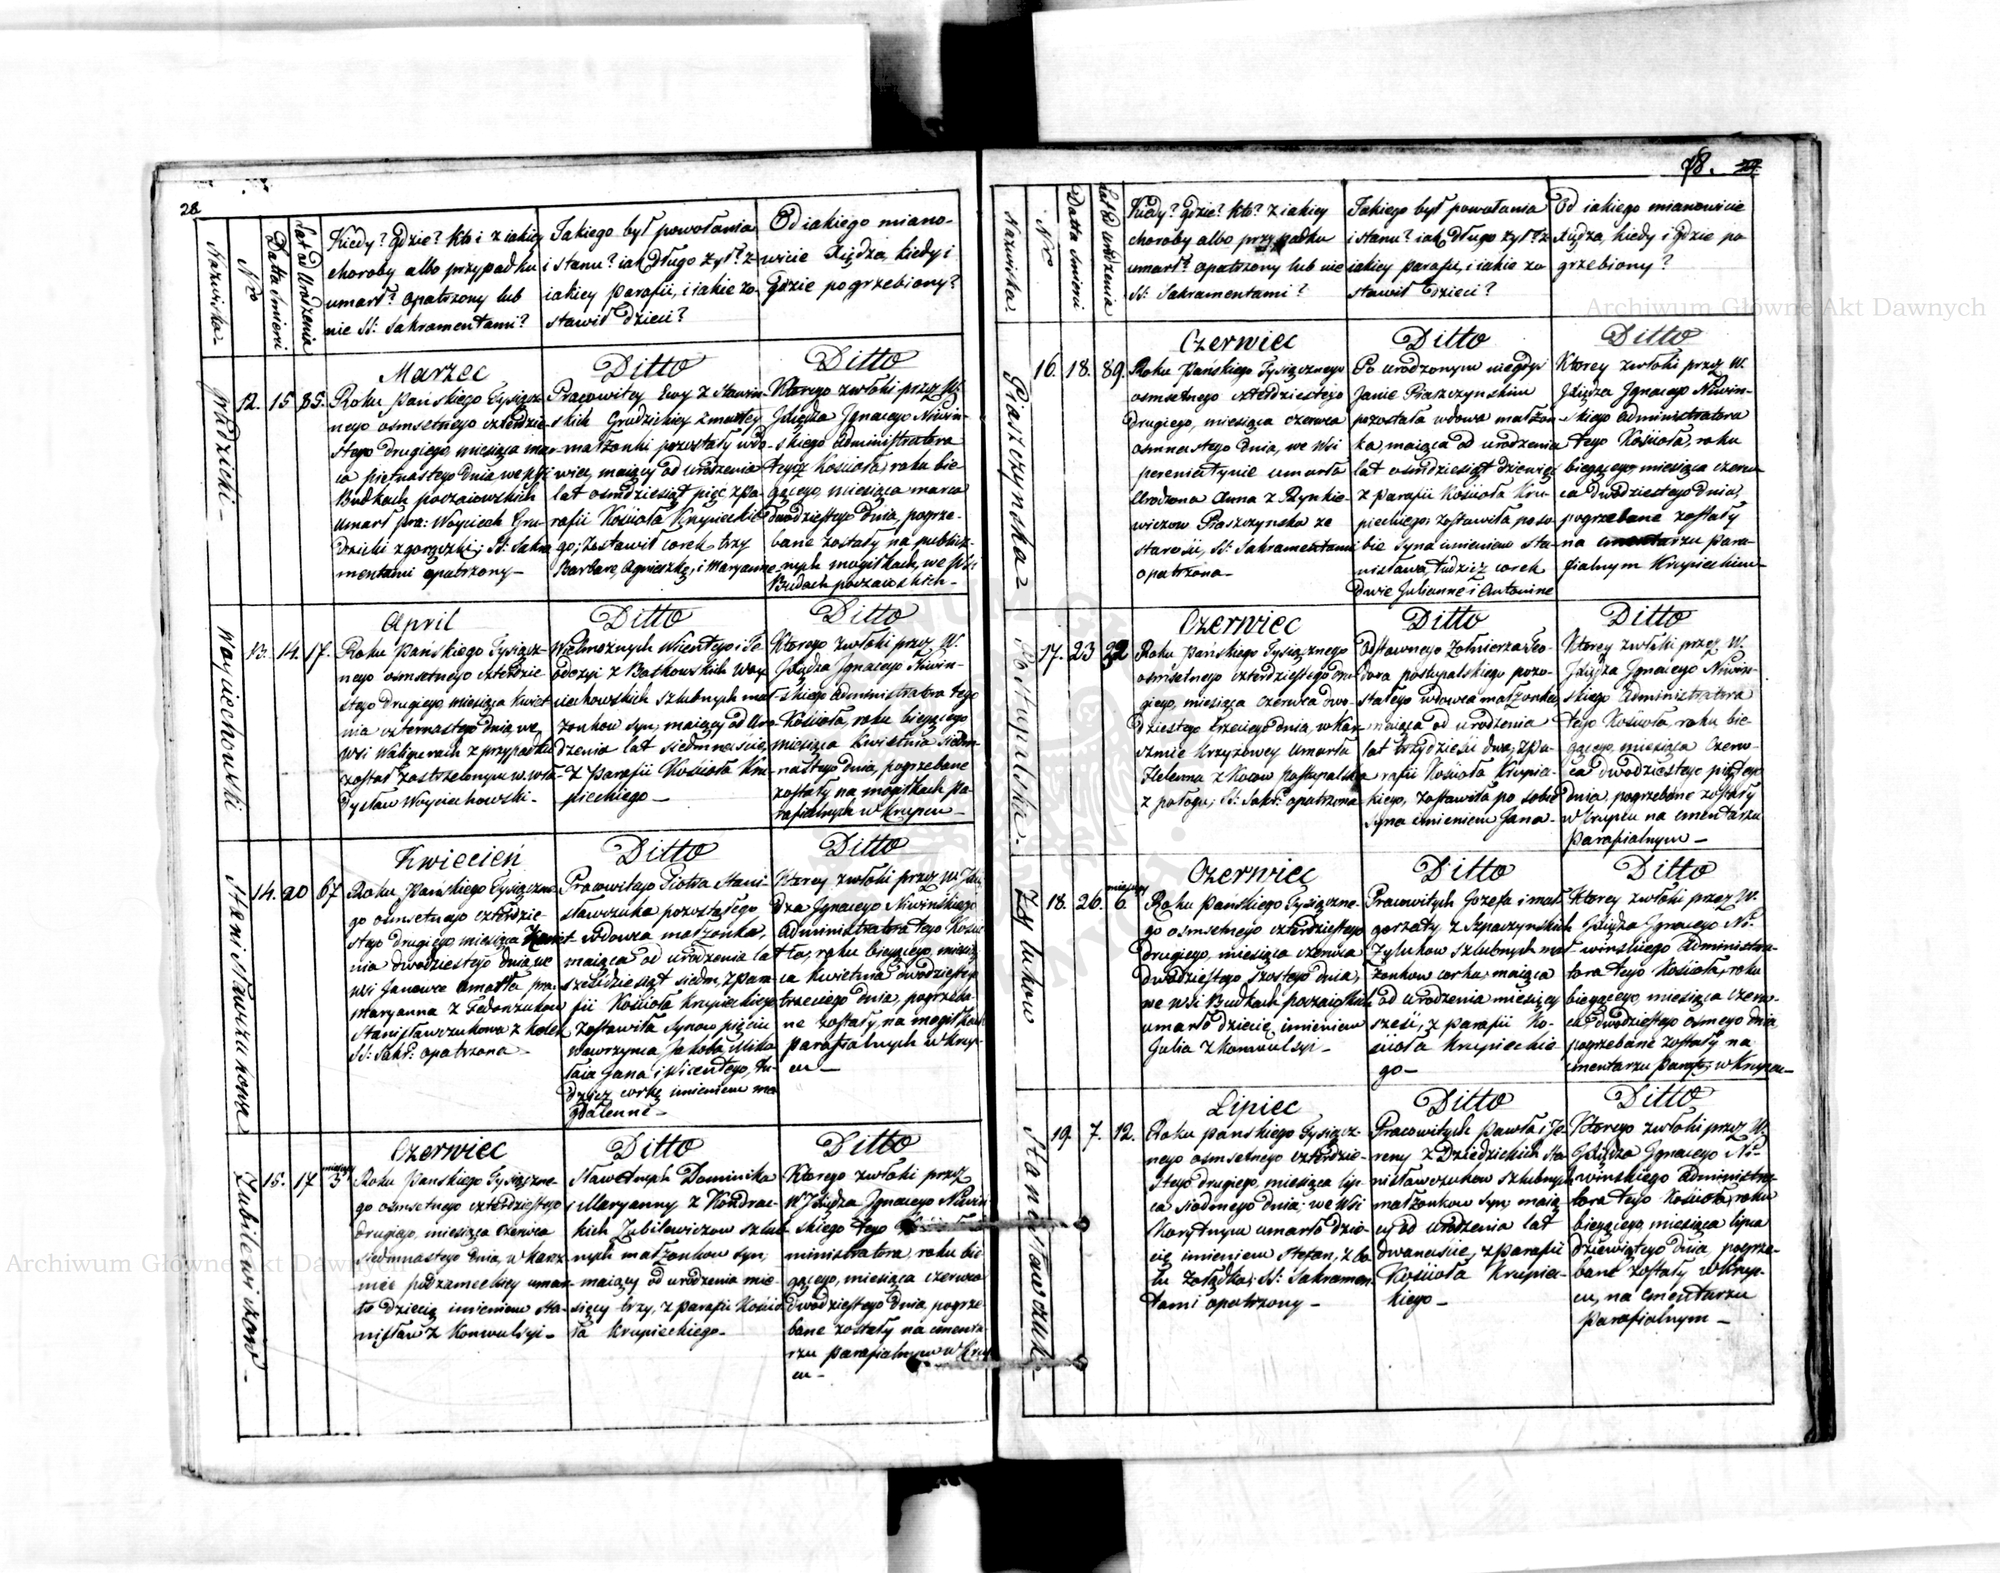 28
Nazwiska
Nro
Datta Smierci
Lat od Urodzenia
Kiedy? Gdzie? kto i z iakiey
choroby albo przypadku
umarł? opatrzony lub
nie SS: Sakramentami?
Jakiego był powołania
i stanu? iak długo żył? z
iakiey Parafii, i iakie zo-
stawił dzieci?
Od iakiego miano-
wicie Xiędza, kiedy i
Gdzie pogrzebiony?
Grudzicki -
12. 15. 85.
Marzec
Roku Pańskiego Tysiącz-
nego osmsetnego czterdzie-
stego drugiego, miesiąca mar-
ca piętnastego dnia we wsi
Budkach poczaiowskich
umarł pra: Woyciech Gru-
dzicki z gorączki; SS: Sakra
mentami opatrzony -
Ditto
Pracowitey Ewy z Stawin-
skich Grudzickiey zmarłey
małżonki pozostały wdo-
wiec, maiący od urodzenia
lat osmdziesiąt pięć, z Pa-
rafii Kościoła Krupieckie
go; zostawił corek trzy
Barbarę, Agnieszkę, i Maryannę
Ditto
Ktorego zwłoki przez W.
Xiędza Jgnacego Niwin-
skiego Administratora
tegoż Kościoła, roku bie
gącego, miesiąca marca
dwudziestego dnia, pogrze-
bane zostały na publicz-
nych mogiłkach, we wsi
Budach poczaiowskich -
Woyciechowski
13. 14. 17.
April
Roku Pańskiego Tysiącz-
nego osmsetnego czterdzie
stego drugiego, miesiąca Kwiet
nia czternastego dnia, we
wsi Waligurach z przypadku
został zastrzelonym w. Wła-
dysław Woyciechowski -
Ditto
Wielmożnych Wicentego i Te
odozyi z Bathowskich Woy-
ciechowskich szlubnych mał-
żonkow syn, maiący od Uro
dzenia lat siedmnaście,
z Parafii Kościoła Kru
pieckiego -
Ditto
Ktorego zwłoki przez W.
Xiędza Jgnacego Niwin-
skiego Administratora tego
Kościoła, roku bieżącego
miesiąca Kwietnia siedm-
nastego dnia, pogrzebane
zostały na mogiłkach pa-
rafialnych w Krupcu -
Stanisławczukowa
14. 20 67
Kwiecień
Roku Pańskiego Tysiączne
go osmsetnego czterdzie-
stego drugiego miesiąca Kwiet-
nia dwudziestego dnia, we
wsi Janowce umarła pra:
Maryanna z Fedonzukow
Stanisławczukowa z kolek
SS: Sakr: opatrzona -
Ditto
Pracowitego Piotra Stani-
sławczuka pozostałego
wdowca małżonka,
maiąca od urodzenia lat
sześćdziesiąt siedm, z Para-
fii Kościoła Krupieckiego
zostawiła synow pięciu
Wawrzyńca, Jakoba, Miko
łaia Jana i Wicentego, tu-
dzież corkę imieniem Ma
gdalennę -
Ditto
Ktorey zwłoki przez W: Xię
dza Jgnacego Niwinskiego
Administratora tego Kościo
ła, roku bieżącego, miesią-
ca Kwietnia dwudziestego
trzeciego dnia, pogrzeba-
ne zostały, na mogiłkach
parafialnych w Krup-
cu -
Zubilewiczow -
15. 17 miesięcy 3
Czerwiec
Roku Pańskiego Tysiączne-
go osmsetnego czterdziestego
drugiego, miesiąca czerwca
siedmnastego dnia, w karcz
mie podzamcekiey umar-
ło dziecię imieniem Sta-
nisław z konwulsyi -
Ditto
Sławetnych Dominika
i Maryanny z Kondrac-
kich Zubilewiczow szlub
nych małżonkow syn,
maiący od urodzenia mie-
sięcy trzy, z Parafii Kościo
ła Krupieckiego -
Ditto
Ktorego zwłoki przez
W Xiędza Jgnacego Niwin
skiego tego
ministratora, roku bie
gącego, miesiąca czerwca
dwudziestego dnia, pogrze-
bane zostały na cmenta-
rzu parafialnym w Krup
cu -
78.
Nazwiska
Nro
Datta Smierci
Lat od urodzenia
Kiedy? gdzie? kto? z iakiey
choroby albo przypadku
umarł? opatrzony lub nie
SS: Sakramentami?
Jakiego był powołania
i stanu? iak długo żył? z
iakiey Parafii, i iakie zo
stawił dzieci?
Od iakiego mianowicie
Xiędza, kiedy i gdzie po
grzebiony?
Piaszczynska
16. 18. 89.
Czerwiec
Roku Pańskiego Tysiącznego
osmsetnego czterdziestego
drugiego, miesiąca czerwca
osmnastego dnia, we wsi
peremiatynie umarła
Urodzona Anna z Rynkie-
wiczow Piaszczynska ze
starości, SS: Sakramentami
opatrzona -
Ditto
Po urodzonym niegdyś
Janie Piaszczynskim
pozostała wdowa małżon
ka, maiąca od urodzenia
lat osmdziesiąt dziewięć
z Parafii Kościoła Kru-
pieckiego; zostawiła po so-
bie syna imieniem Sta-
nisława, tudzież corek
dwie Juliannę i Antoninę
Ditto
Ktorey zwłoki przez W.
Xiędza Jgnacego Niwin-
skiego Administratora
tego Kościoła, roku
biegącego, miesiąca czerw-
ca dwudziestego dnia,
pogrzebane zostały
na cmentarzu para-
fialnym Krupieckim -
Postupalska
17. 23 32
Czerwiec
Roku Pańskiego Tysiącznego
osmsetnego czterdziestego dru
giego, miesiąca Czerwca dwu-
dziestego trzeciego dnia, w Kar
czmie krzyżowey umarła
Helenna z Kocow Postupalska
z połogu; SS: Sakr: opatrzona
Ditto
Odstawnego Żołnierza Teo-
dora postupalskiego pozo-
stałego wdowca małżonka,
maiąca od urodzenia
lat trzydzieści dwa, z Pa-
rafii Kościoła Krupie-
kiego, zostawiła po sobie
syna imieniem Jana -
Ditto
Ktorey zwłoki przez W.
Xiędza Jgnacego Niwin-
skiego Administratora
tego Kościoła, roku bie-
gącego, miesiąca Czerw-
ca dwudziestego piątego
dnia, pogrzebane zostały
w Krupcu na cmentarzu
parafialnym -
Zylukow
18. 26. miesięcy 6
Czerwiec
Roku Pańskiego Tysiączne-
go osmsetnego czterdziestego
drugiego, miesiąca czerwca
dwudziestego szostego dnia,
we wsi Budkach poczaiskich
umarło dziecię, imieniem
Julia z konwulsyi -
Ditto
Pracowitych Jozefa i Mał-
gorzaty z Szpaczynskich
Zylukow szlubnych mał
żonkow corka, maiąca
od urodzenia miesięcy
sześć, z Parafii Ko-
ścioła Krupieckie
go -
Ditto
Ktorey zwłoki przez W.
Xiędza Jgnacego Ni-
winskiego Administra-
tora tego Kościoła, roku
biegącego, miesiąca czerw-
ca dwudziestego osmego dnia
pogrzebane zostały na
cmentarzu Paraf: w Krupcu -
Stanisławczuk -
19. 7. 12.
Lipiec
Roku pańskiego Tysiącz-
nego osmsetnego czterdzie-
stego drugiego, miesiąca lip-
ca siodmego dnia; we wsi
Korytnym umarło dzie-
cię imieniem Stefan, z bo-
lu żołądka; SS: Sakramen-
tami opatrzony -
Ditto
Pracowitych Pawła i Te-
reny z Dziedzickich Sta-
nisławczukow szlubnych
małżonkow syn; maią-
cy od urodzenia lat
dwanaście, z Parafii
Kościoła Krupiec-
kiego -
Ditto
Ktorego zwłoki przez W.
Xiędza Jgnacego Ni-
winskiego Administra-
tora tego Kościoła, roku
biegącego, miesiąca lipca
dziewiątego dnia, pogrze-
bane zostały w Krup-
cu, na cmentarzu
parafialnym -
Archiwum Główne Akt Dawnych
Archiwum Główne Akt Dawnych